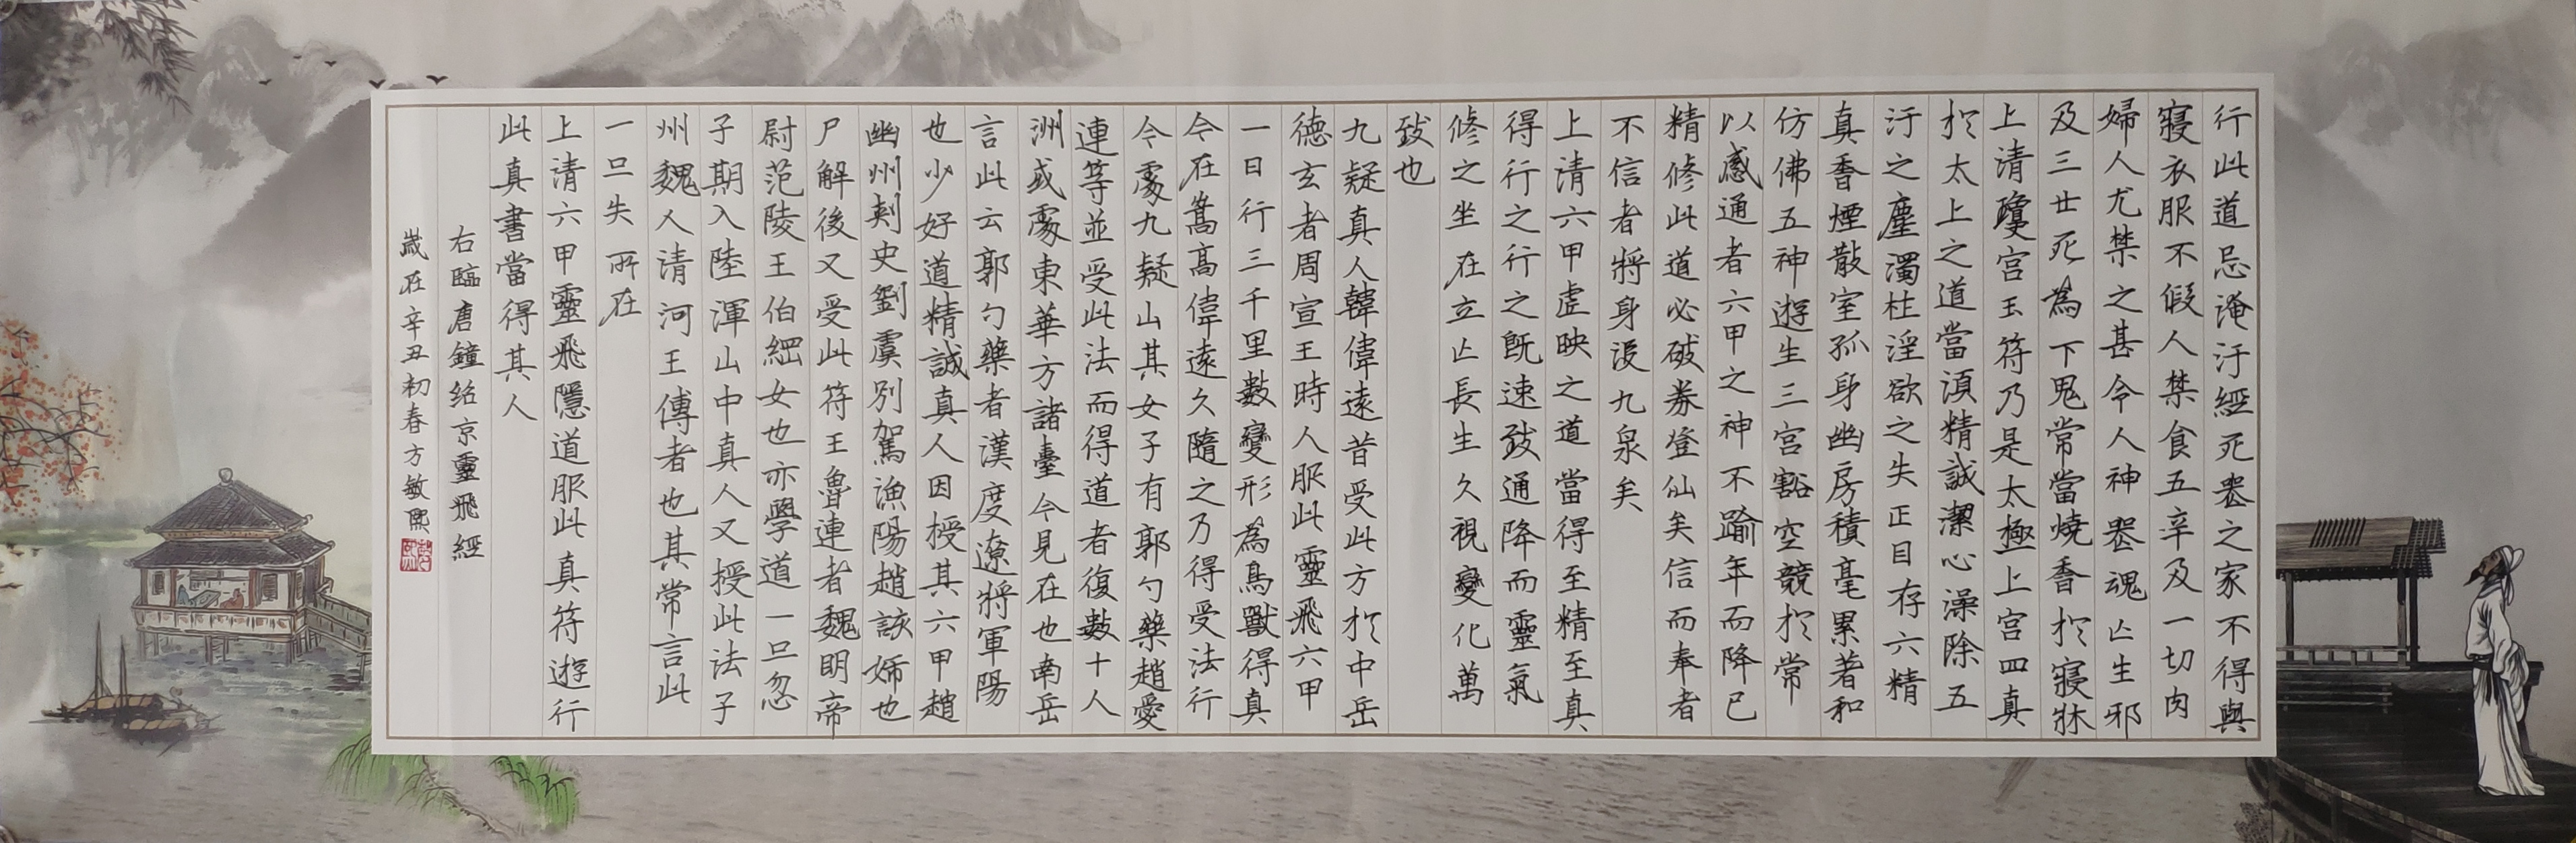 行此道忌淹汙經死喪之家不得與
寢衣服不假人禁食五辛及一切肉
婦人尤禁之甚令人神喪魂亡生邪
及三世死為下鬼常當燒香於寢牀
上清瓊宮玉符乃是太極上宮四真
於太上之道當須精誠潔心澡除五
汙之塵濁杜淫欲之失正目存六精
真香煙散室孤身幽房積毫累著和
仿佛五神遊生三宮豁空競於常
以感通者六甲之神不踰年而降已
精修此道必破券登仙矣信而奉者
不信者將身沒九泉矣
上清六甲虛映之道當得至精至真
得行之行之既速致通降而靈氣
修之坐在立亡長生久視變化萬
致也
九疑真人韓偉遠昔受此方於中岳
德玄者周宣王時人服此靈飛六甲
一日行三千里數變形為鳥獸得真
今在嵩高偉遠久隨之乃得受法行
今處九疑山其女子有郭勺藥趙愛
連等並受此法而得道者復數十人
洲或處東華方諸臺今見在也南岳
言此云郭勺藥者漢度遼將軍陽
也少好道精誠真人因授其六甲趙
幽州刺史劉虞別駕漁陽趙該姊也
尸解後又受此符王魯連者魏明帝
尉范陵王伯綱女也亦學道一旦忽
子期入陸渾山中真人又授此法子
州魏人清河王傅者也其常言此
一旦失所在
上清六甲靈飛隱道服此真符遊行
此真書當得其人
右臨唐鐘紹京靈飛經
歲在辛丑初春方敏熙